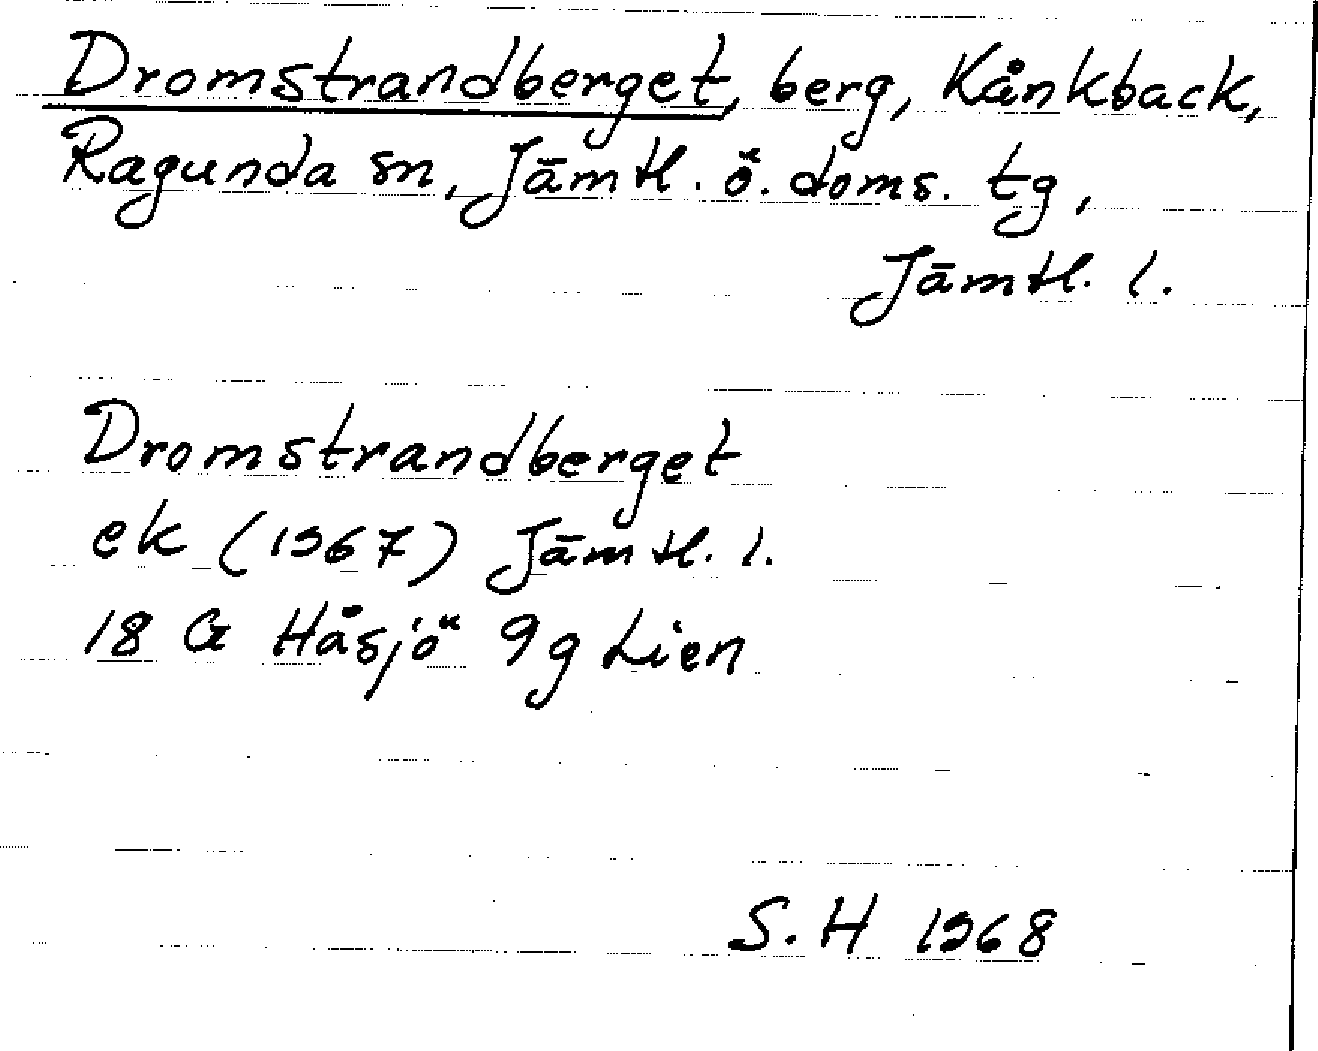 Dromstrandberget, berg, Kånkback,
Ragunda sn, Jämtl. ö. doms. tg,
Jämtl. l.
Dromstrandberget
ek (1967) Jämtl. l.
18 G Håsjö 9g Lien
S. H 1968